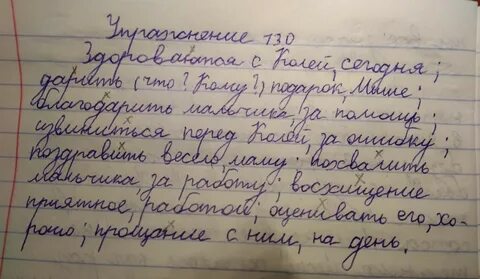 Упражнение 130
Здороваются с Колей, сегодня;
дарить (что? Кому?) подарок, Мише;
благодарить мальчика, за помощь;
извиниться перед Колей, за ошибку;
поздравить весело, маму; похвалить
мальчика, за работу; восхищение
приятное, работой; оценивать его, хо-
рошо; прощание с ним, на день.